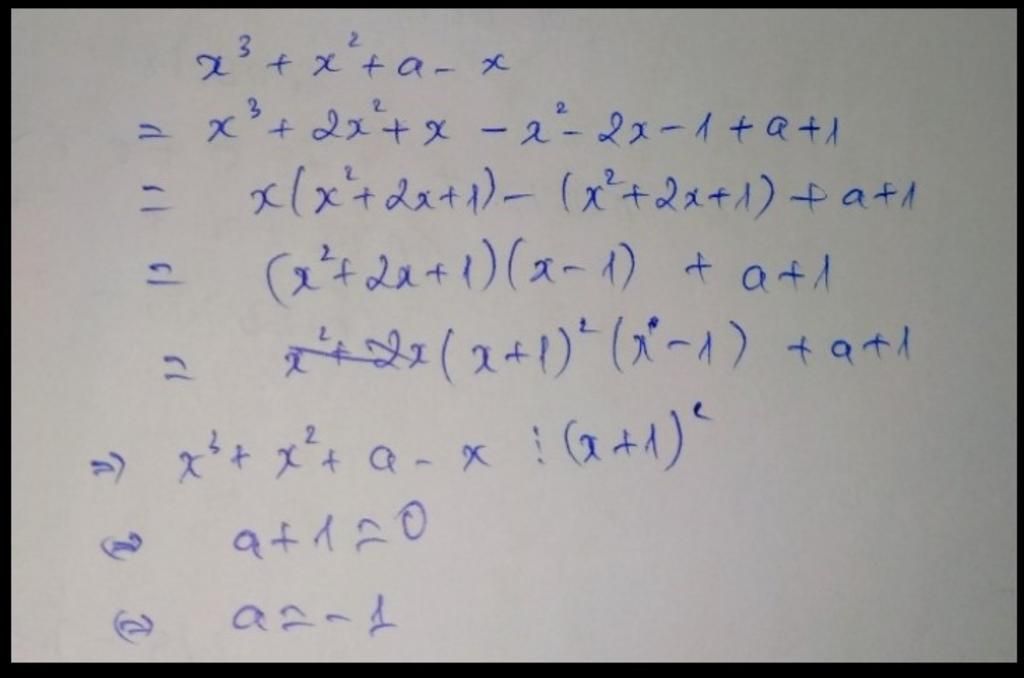 x³ + x² + a - x
= x³ + 2x² + x - x² - 2x - 1 + a + 1
= x(x² + 2x + 1) - (x² + 2x + 1) + a + 1
= (x² + 2x + 1)(x - 1) + a + 1
= (x + 1)² (x - 1) + a + 1
⇒ x³ + x² + a - x ⋮ (x + 1)²
⇔ a + 1 = 0
⇔ a = - 1